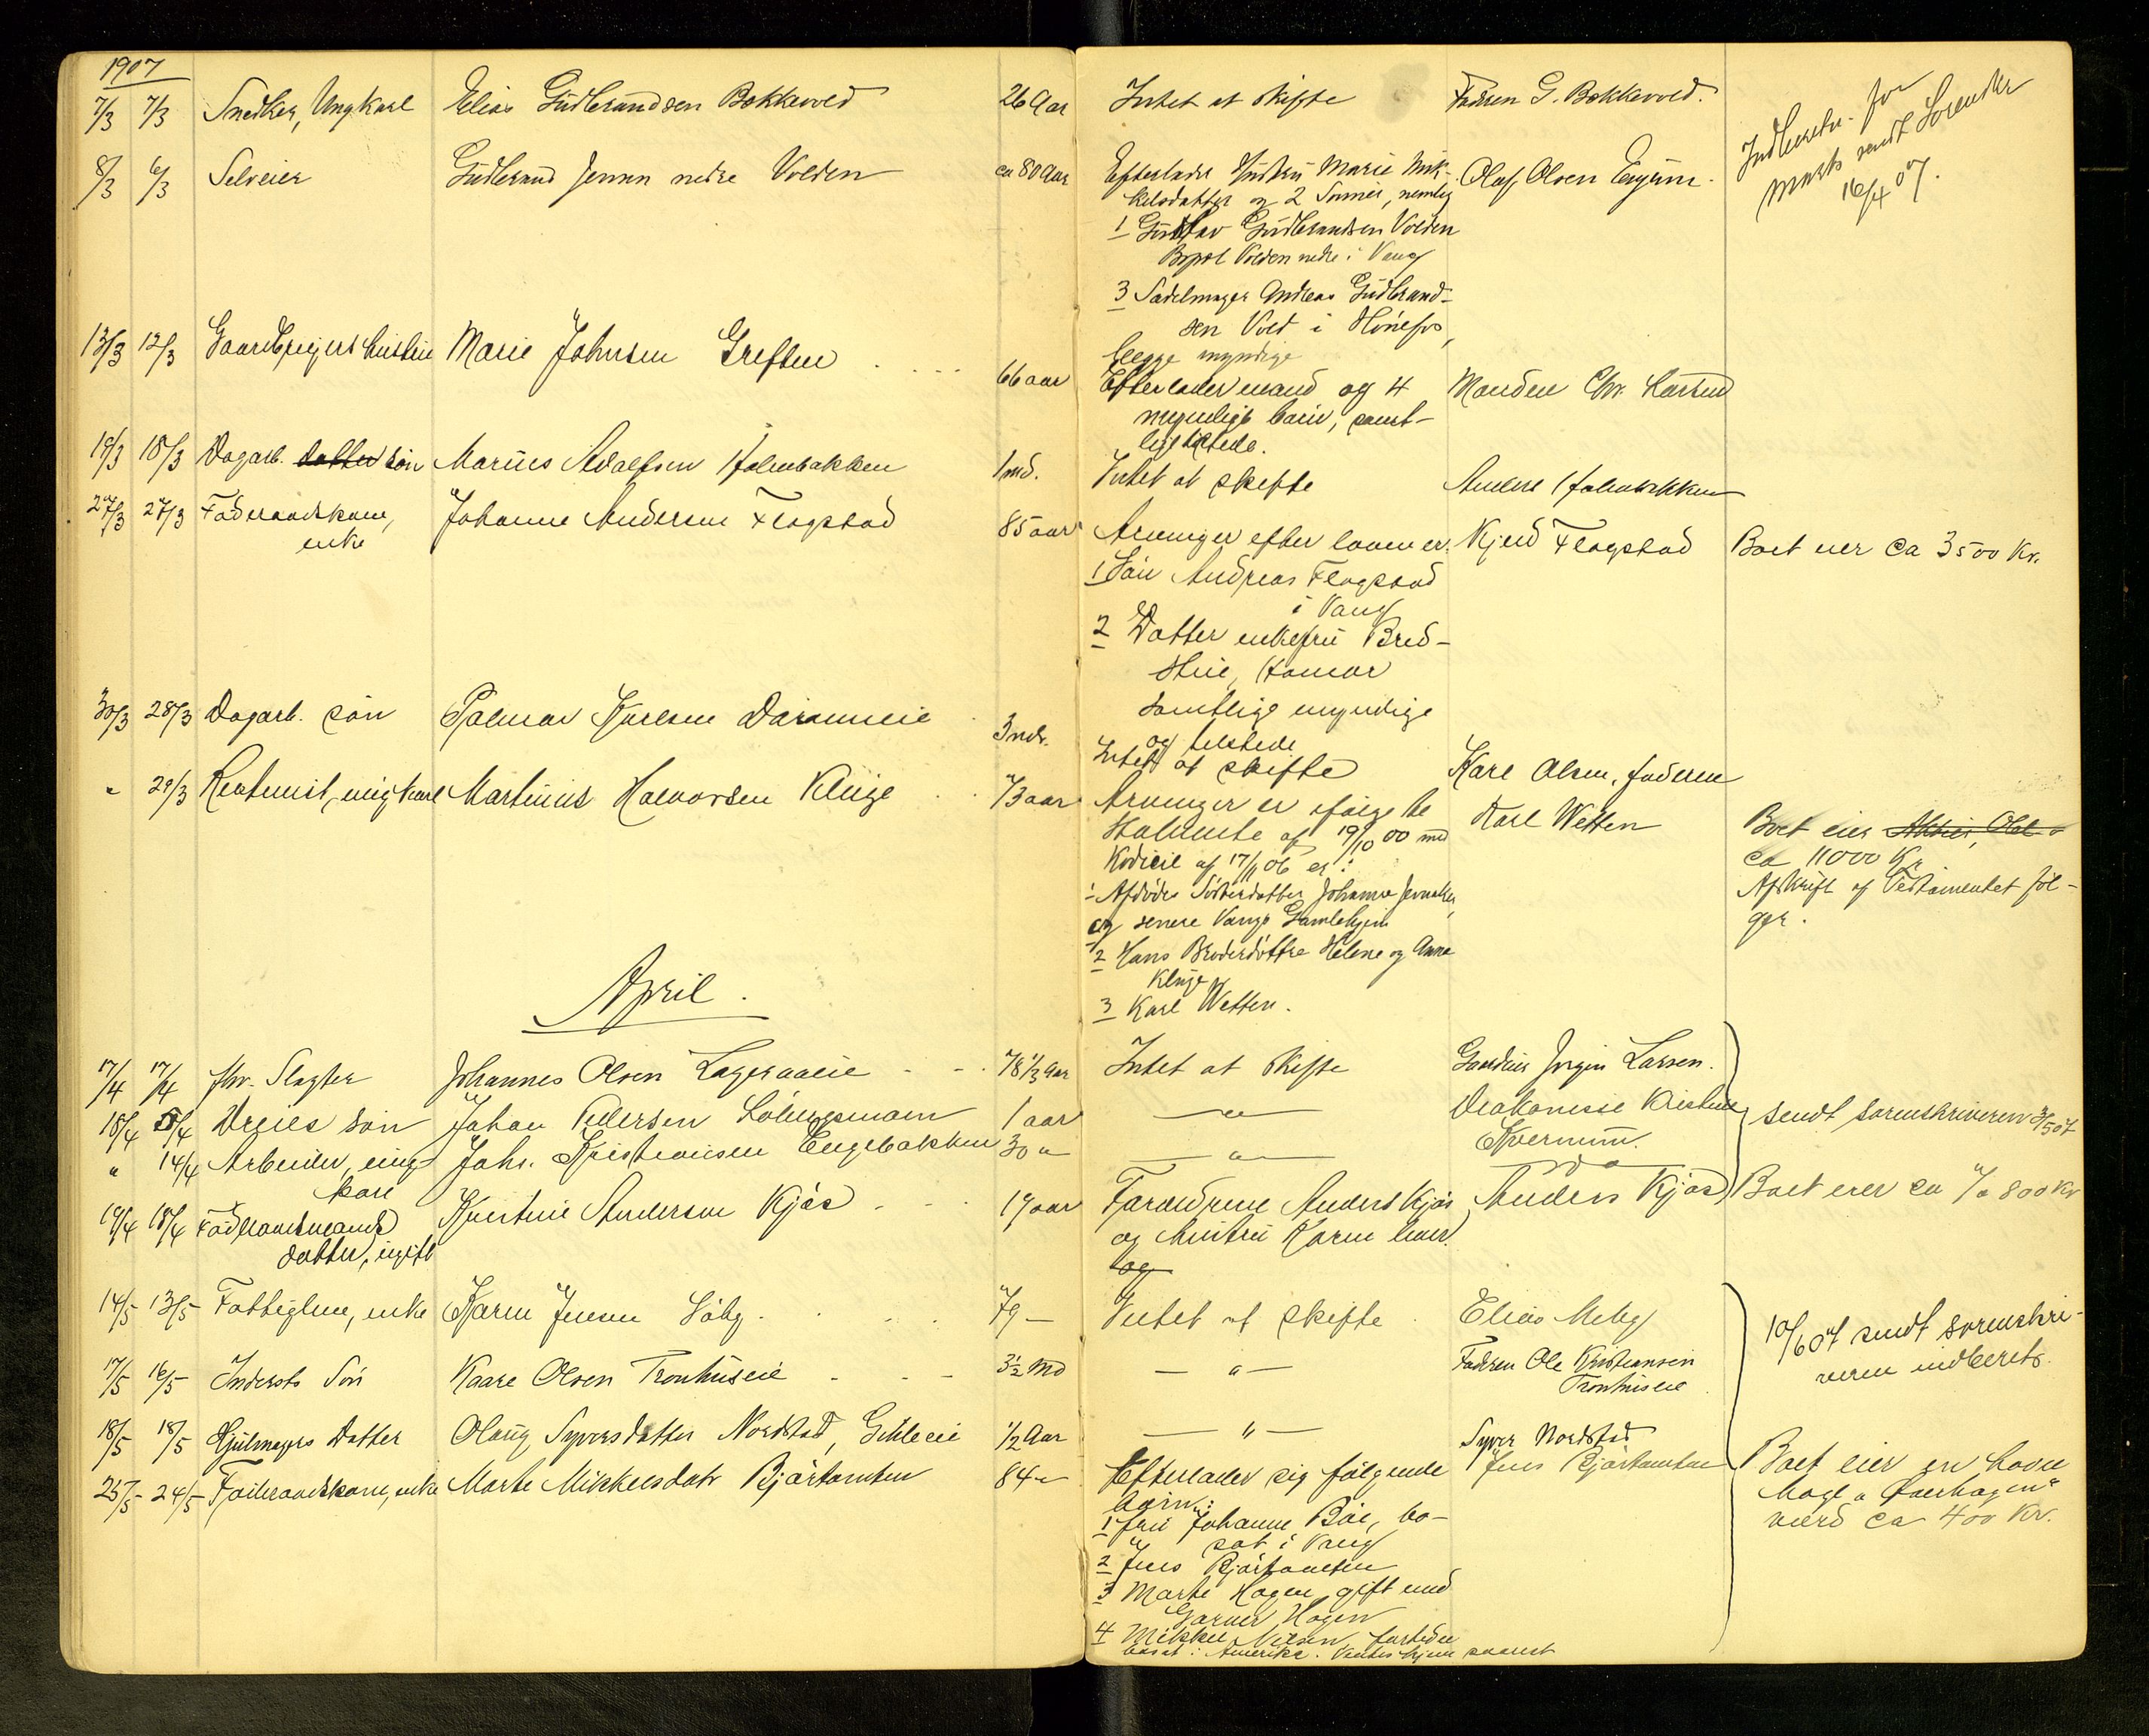 1907
7/3 7/3 Snedker, Ungkarl Elias Gudbrandsen Bakkevold 26 Aar Intet at skifte Faderen G. Bakkevold.
Indberetn. for
Marts sendt Sorenskr
16/4 07.
8/3 6/3 Selveier Gudbrand Jensen nedre Volden ca 80 Aar Efterlader Hustru Marie Mik-
kelsdatter og 2 Sønner, nemlig Olaf Olsen
1 Gustav Gudbrandsen Volden
Bopæl Volden nedre i Vang
3 Sadelmager Andreas Gudbrand-
sen Vold i Hønefos,
begge myndige
13/3 12/3 Gaardbrugers hustru Marie Johnsen Greften 66 aar Efterlader mand og 4 Manden Chr. Larsen
myndige børn, samt-
lige tilstede.
19/3 18/3 Dagarb. datter søn Marius Adolfsen Holenbakken 1 md. Intet at skifte Anders Holenbakken
27/3 27/3 Føderaadskone, Johanne Andersen Flagstad 85 aar Arvinger efter loven er: Kjerd Flagstad Boet eier ca 3500 Kr.
enke
1 Søn Andreas Flagstad
i Vang
2 Datter enkefru Bred-
Hamar
Samtlige myndige
og tilstede
30/3 28/3 Dagarb. søn Hjalmar Karlsen 3 mdr. Intet at skifte Karl Olsen, faderen
" 29/3 Rentenist, ungkarl Martinus Halvorsen Kluge 73 aar Arvinger er ifølge te Karl Wetten Boet eier Aktier, Obl. o
stamente af 19/10 00 med ca 11000 Kr
Kodicil af 17/1 06 er: Afskrift af Testamentet føl-
1 Afdødes Søsterdatter Johanne ger.
og senere Vangs Gamlehjem
2 Hans Broderdøttre Helene og Anna
Kluge
3 Karl Wetten.
April.
17/4 17/4 fhv. Slagter Johannes Olsen Lageraaeie 78 1/3 Aar Intet at skifte Gaardeier Jørgen Larsen.
18/4 /4 søn Johan Pedersen 1 aar — " — Diakonisse Kristine sendt sorenskriveren 3/5 07
" 14/4 Arbeider, ung- Johs. Kristiansen Engebakken 30 " — " — Kvernum.
karl — do —
19/4 18/4 Føderaadsmands Kjerstine Andersen Kjos 19 aar Forældrene Anders Kjos Anders Kjos Boet eier ca 800 Kr
datter, ugift og hustru Karen
og
14/5 13/5 Fattiglem, enke Karen Jensen 79 — Intet at skifte Elias 10/6 07 sendt sorenskri-
veren indberetn.
17/5 16/5 Indersts Søn Kaare Olsen Tronhuseie 3½ Md — " — Faderen Ole Kristiansen
Tronhuseie
18/5 18/5 Hjulmagers Datter Olaug Syversdatter Nordstad, ½ Aar — " — Syver Nordstad
25/5 24/5 Føderaadskone, enke Marte Mikkelsdatr Bjørtomten 84 " Efterlader sig følgende Jens Bjørtomten Boet eier en
børn: værd ca 400 Kr.
1 fru Johanne Bøe, bo-
sat i Vang
2 Jens Bjørtomten
3 Marte Hagen, gift med
Garver Hagen
4 Mikkel Nilsen
bosat i Amerika. Ventes hjem snarest